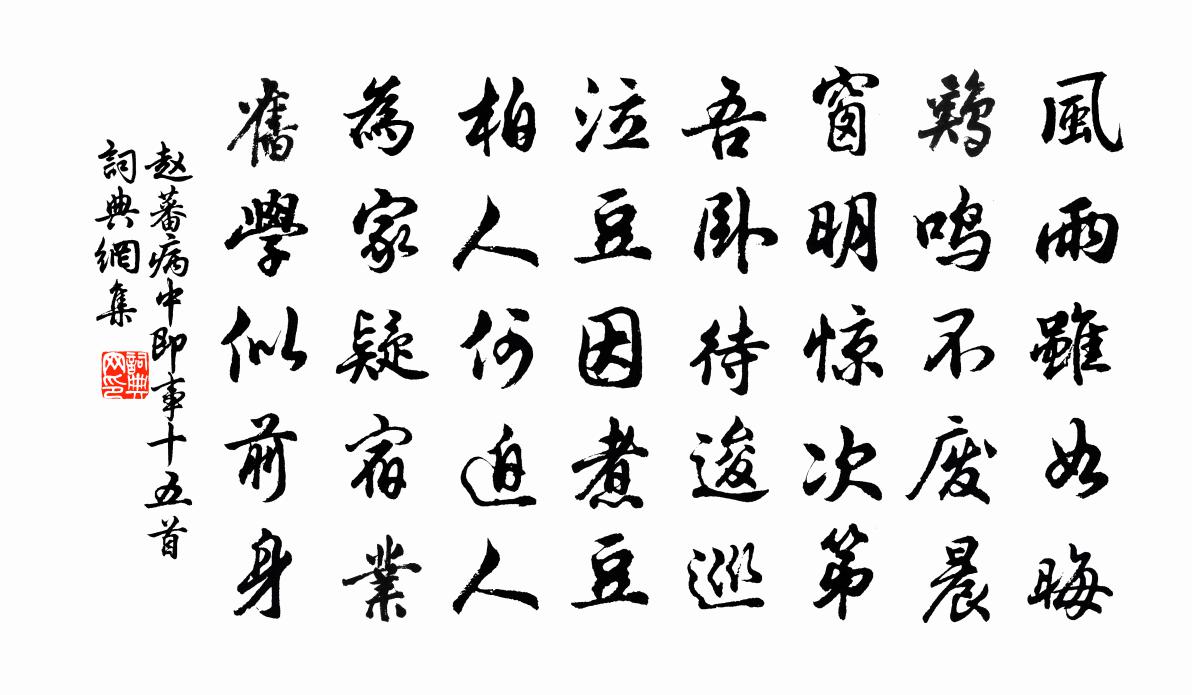 風雨雖如晦
鷄鸣不废晨
窗明惊次第
吾卧待逡巡
泣豆因煮豆
柏人何迫人
為家疑宿業
舊學似前身
赵蕃病中即事十五首
詞典網集
詞典网印